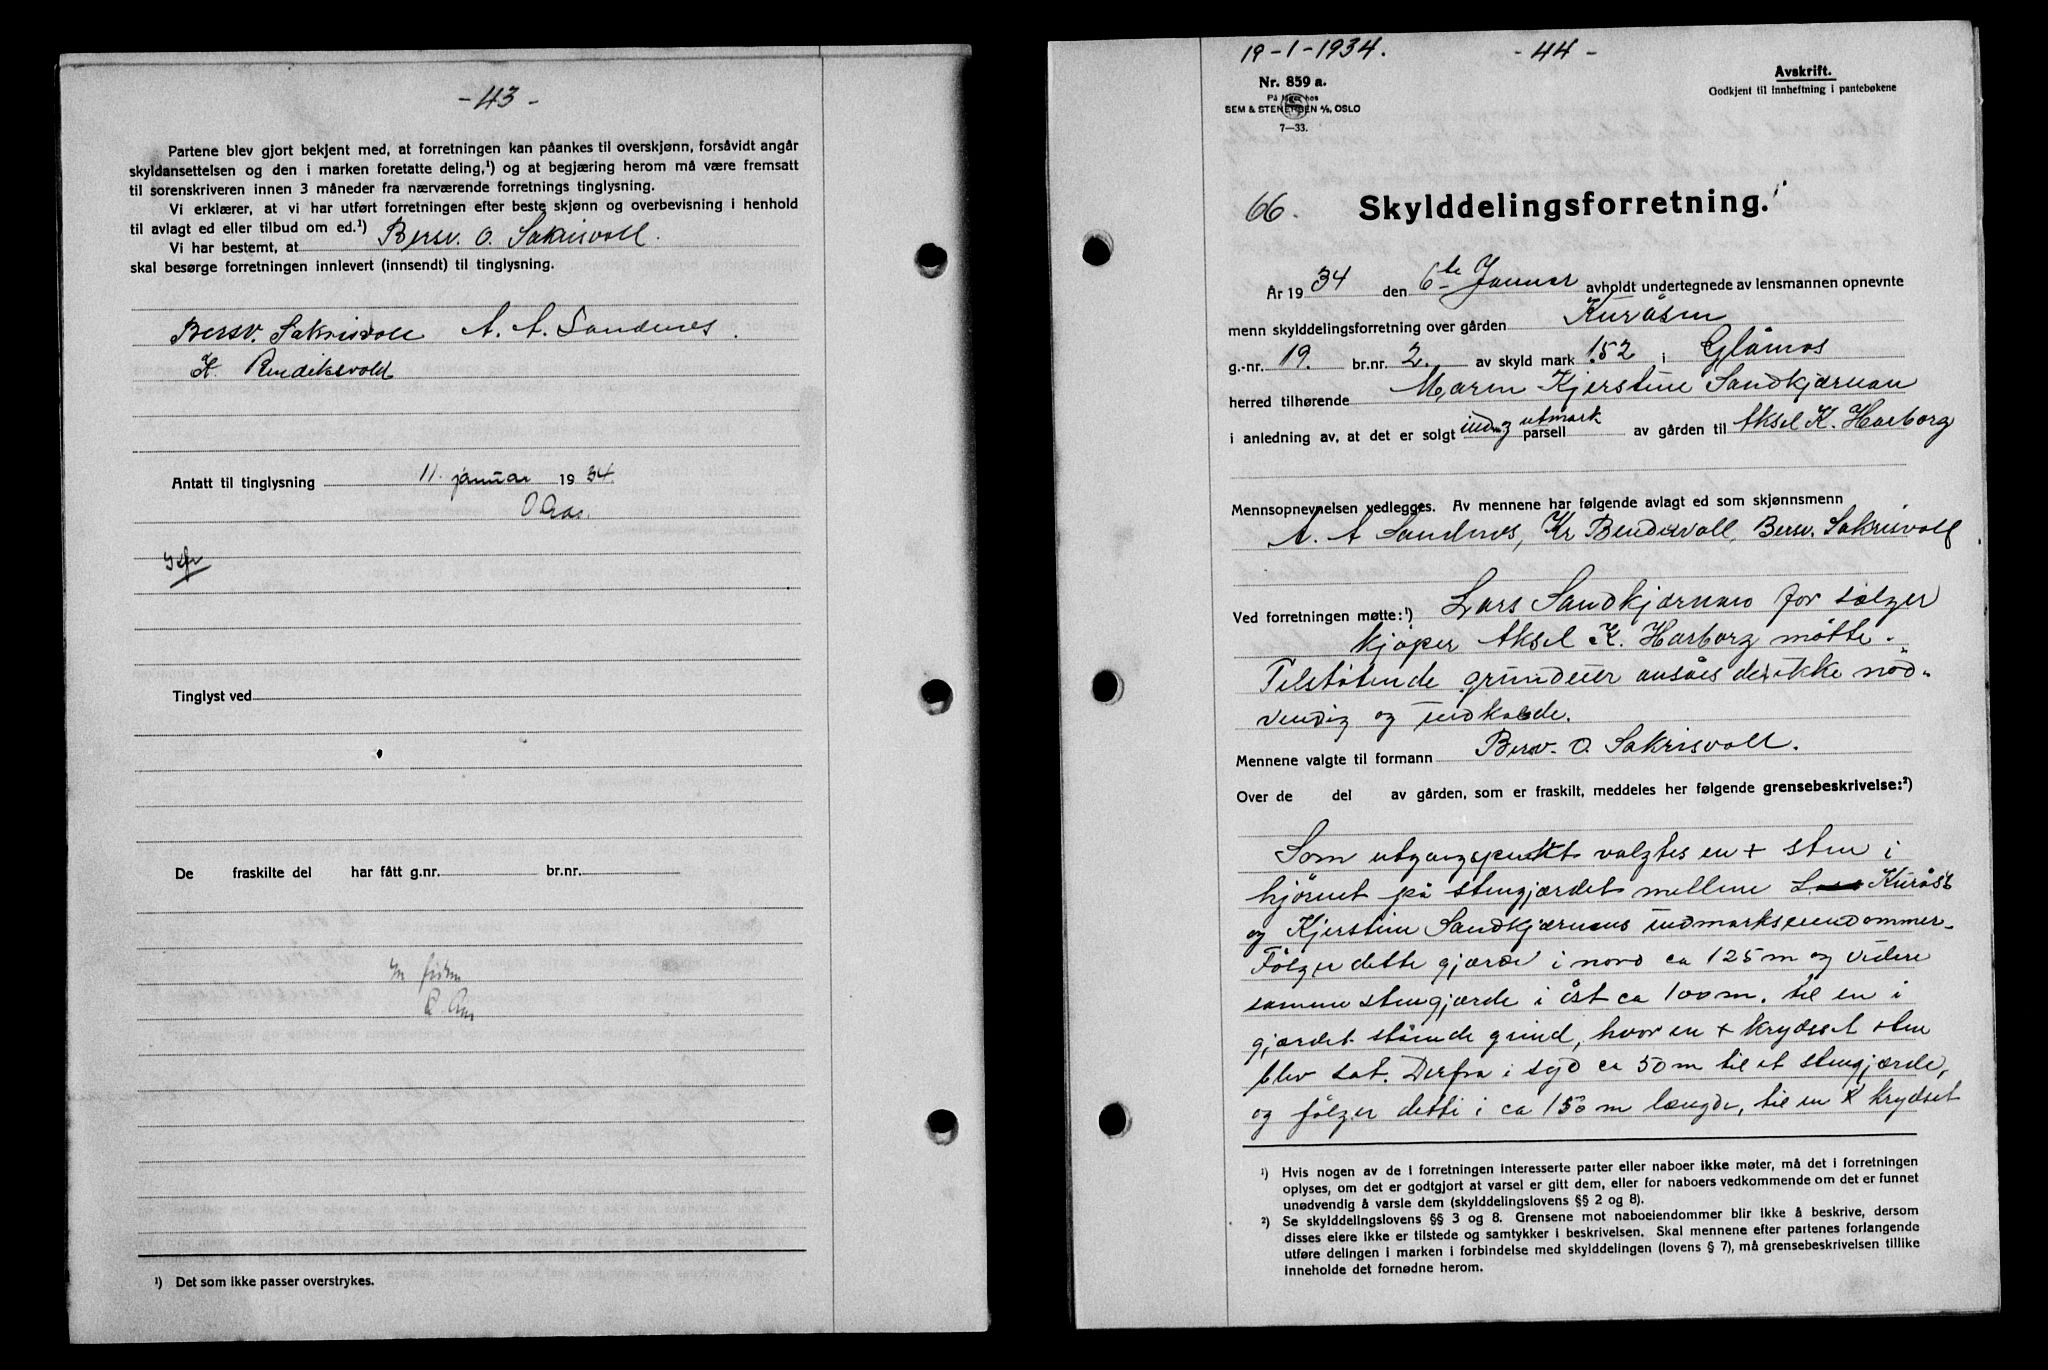 - 43 -
Partene blev gjort bekjent med, at forretningen kan påankes til overskjønn, forsåvidt angår
skyldansettelsen og den i marken foretatte deling,¹) og at begjæring herom må være fremsatt
til sorenskriveren innen 3 måneder fra nærværende forretnings tinglysning.
Vi erklærer, at vi har utført forretningen efter beste skjønn og overbevisning i henhold
til avlagt ed eller tilbud om ed.¹)
Vi har bestemt, at Bersv. O. Sakrisvoll.
skal besørge forretningen innlevert (innsendt) til tinglysning.
Bersv. Sakrisvoll A. A. Sandnes.
K. Bendiksvold
Antatt til tinglysning 11. januar 1934.
Tinglyst ved
De fraskilte del har fått g.nr. br.nr.
¹) Det som ikke passer overstrykes.
19-1-1934. - 44 -
Nr. 859 a.
På lager hos
SEM & STENERSEN A/S, OSLO
7—33.
Avskrift.
Godkjent til innheftning i pantebøkene
66. Skylddelingsforretning.
År 1934 den 6te Januar avholdt undertegnede av lensmannen opnevnte
menn skylddelingsforretning over gården Kuråsen
g.-nr. 19. br.nr. 2. av skyld mark 1.52 i Glåmos
herred tilhørende Maren Kjerstine Sandkjærnan
i anledning av, at det er solgt ind og utmark parsell av gården til Aksel K. Harborg
Mennsopnevnelsen vedlegges. Av mennene har følgende avlagt ed som skjønnsmenn
A. A Sandnes, Kr Bendixvoll, Bersv. Sakrisvoll
Ved forretningen møtte:¹) Lars Sandkjærnan for sælger
kjøper Aksel K. Harborg møtte.
Tilstøtende grundeier ansåes det ikke nöd-
vendig og indkalde.
Mennene valgte til formann Bersv. O. Sakrisvoll.
Over de del av gården, som er fraskilt, meddeles her følgende grensebeskrivelse:²)
Som utgangspunkt valgtes en + sten i
hjørnet på stengjærdet mellem Kurås
og Kjerstine Sandkjærnans indmarkseiendommer.
Følger dette gjærde i nord ca 125 m og videre
samme stengjærde i öst ca 100 m. til en i
gjærdet stående grind, hvor en + krydset sten
blev sat. Derfra i syd ca 50 m til et stengjærde,
og følger dette i ca 150 m længde, til en x krydset
¹) Hvis nogen av de i forretningen interesserte parter eller naboer ikke møter, må det i forretningen
oplyses, om det er godtgjort at varsel er gitt dem, eller for naboers vedkommende om det er funnet
unødvendig å varsle dem (skylddelingslovens §§ 2 og 8).
²) Se skylddelingslovens §§ 3 og 8. Grensene mot naboeiendommer blir ikke å beskrive, dersom
disses eiere ikke er tilstede og samtykker i beskrivelsen. Skal mennene efter partenes forlangende
utføre delingen i marken i forbindelse med skylddelingen (lovens § 7), må grensebeskrivelsen tillike
inneholde det fornødne herom.